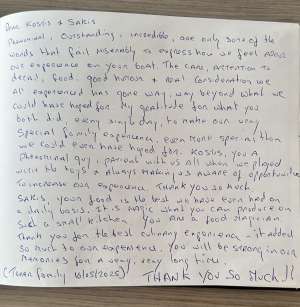 Dear Kostis & Sakis
Phenomenal, Outstanding, incredible, are only some of the
words that fail miserably to express how we feel about
our experience on your boat. The care, attention to
detail, food, good humour & real consideration we
all experienced has gone way, way beyond what we
could have hoped for. My gratitude for what you
both did, every single day, to make our very
special family experience, even more special than
we could even have hoped for. Kostis, you a
phenomenal guy, patient with us all when we played
with the toys & always making us aware of opportunities
to increase our experience. Thank you so much.
Sakis, your food is the best we have ever had on
a daily basis, it is magic what you can produce in
such a small kitchen. You are a food magician
Thank you for the best culinary experience – it added
so much to our experience. You will be strong in our
memories for a very, very long time.
family 16/05/2025) THANK YOU SO MUCH!!